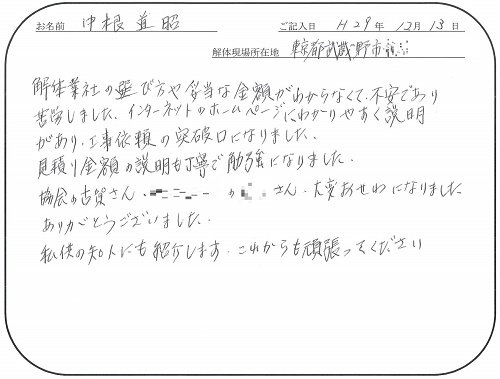 お名前 中根 道昭 ご記入日 H29年 12月 13日
解体現場所在地 東京都武蔵野市
解体業社の選び方や妥当な金額がわからなくて、不安であり
苦労しました。インターネットのホームページにわかりやすく説明
があり、工事依頼の突破口になりました。
見積り金額の説明も丁寧で勉強になりました。
協会の古賀さん、 の さん、大変おせわになりました
ありがとうございました。
私供の知人にも紹介します。これからも頑張ってください